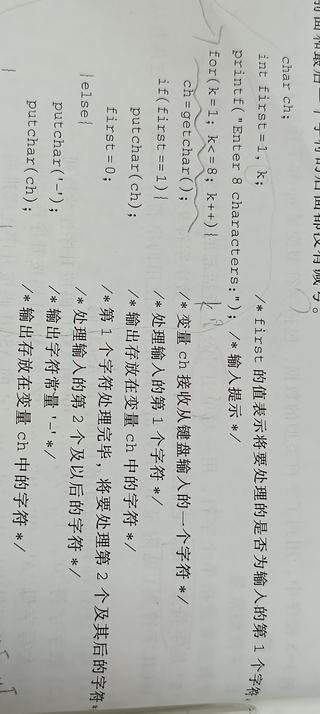 前面和最后一个字符的后面都没有减号。
char ch;
int first=1, k;    /*first 的值表示将要处理的是否为输入的第 1 个字符,
printf("Enter 8 characters:");    /*输入提示*/
for(k=1; k<=8; k++){
ch=getchar();    /*变量 ch 接收从键盘输入的一个字符*/
if(first==1){    /*处理输入的第 1 个字符*/
putchar(ch);    /*输出存放在变量 ch 中的字符*/
first=0;    /*第 1 个字符处理完毕，将要处理第 2 个及其后的字符*
}else{    /*处理输入的第 2 个及以后的字符*/
putchar('-');    /*输出字符常量'-'*/
putchar(ch);    /*输出存放在变量 ch 中的字符*/
}